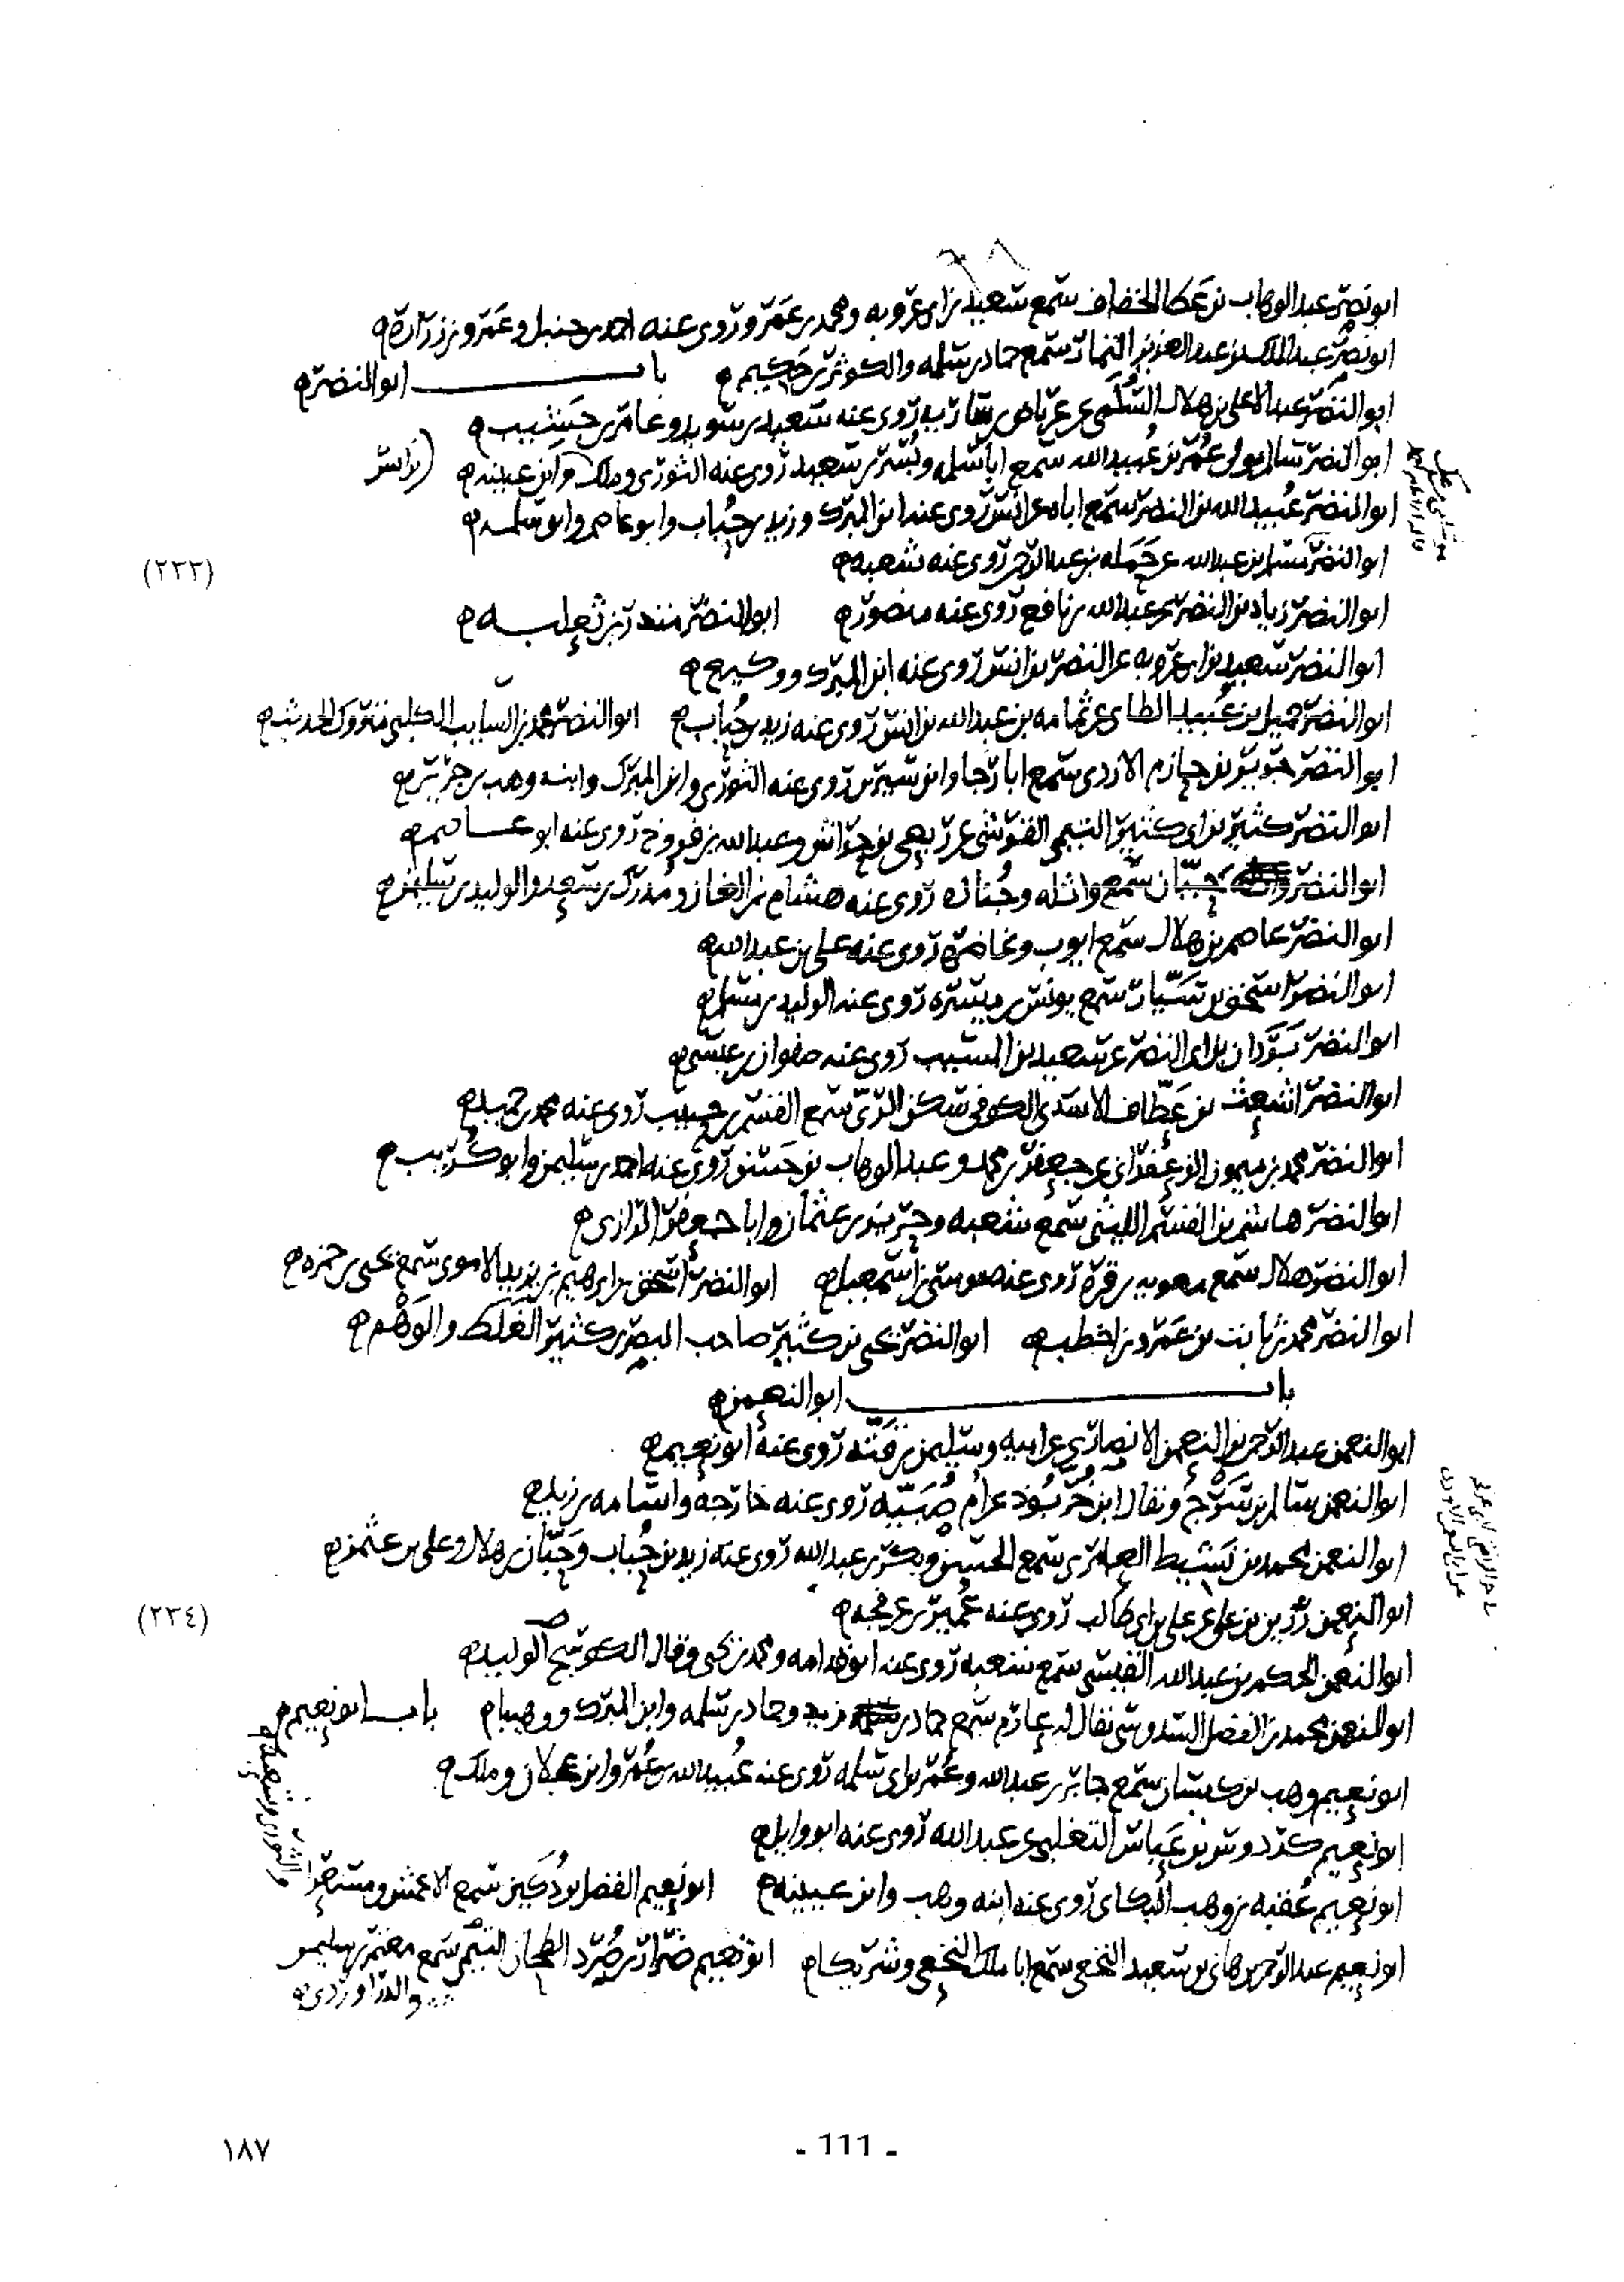 ابو نصر عبد الوهاب بن عطا الخفاف سمع سعيد بن ابي عروبه ومحمد بن عمرو روى عنه احمد بن حنبل وعمرو بن زرارة
ابو نصر عبد الملك بن عبد العزيز التمار سمع حماد بن سلمه والكوثر بن حكيم
باب ابو النضر
ابو النضر عبد الاعلى بن هلال السلمي عن عرباض بن سارية روى عنه سعيد بن سويد وعامر بن جشيب
ابو النضر سالم مولى عمر بن عبيد الله سمع ابا سلمه وبسر بن سعيد روى عنه الثوري وملك وابن عيينه
ابو النضر عبيد الله بن النضر سمع اباه عن انس روى عنه ابن المبرك وزيد بن حباب وابو عاصم وابو سلمه
(٢٣٣)
ابو النضر مسلم بن عبد الله عن حمله بن عبد الرحمن روى عنه شعبه
ابو النضر زياد بن النضر سمع عبد الله بن نافع روى عنه منصور ابو النضر منذر بن ثعلبه
ابو النضر سعيد بن ابي عروبه عن النضر بن انس روى عنه ابن المبرك ووكيع
ابو النضر جميل بن عبيد الطاي عن ثمامه بن عبد الله بن انس روى عنه زيد بن حباب ابو النضر محمد بن السايب الكلبي متروك الحديث
ابو النضر جرير بن حازم الازدي سمع ابا رجا وابن سيرين روى عنه الثوري وابن المبرك وابنه وهب بن جرير
ابو النضر كثير بن ابي كثير التيمي القرشي عن ربعي بن حراش وعبد الله بن فروخ روى عنه ابو عاصم
ابو النضر حيان سمع واثله وجناده روى عنه هشام بن الغاز ومدرك بن سعد والوليد بن سليمن
ابو النضر عاصم بن هلال سمع ايوب وغاضرة روى عنه علي بن عبد الله
ابو النضر اسحق بن سيار سمع يونس بن ميسره روى عنه الوليد بن مسلم
ابو النضر سودان بن ابي النضر عن سعيد بن المسيب روى عنه صفوان بن عيسى
ابو النضر اشعث بن عطاف الاسدي الكوفي سكن الري سمع القسم بن حبيب روى عنه محمد بن حميد
ابو النضر محمد بن ميمون الزعفراني عن جعفر بن محمد وعبد الوهاب بن حسن روى عنه احمد بن سليمن وابو كريب
ابو النضر هاشم بن القسم الليثي سمع شعبه وحريز بن عثمان وابا جعفر الرازي
ابو النضر هلال سمع معويه بن قرة روى عنه موسى بن اسمعيل ابو النضر اسحق بن ابرهيم بن يزيد الاموي سمع يحيى بن حمزه
ابو النضر محمد بن ثابت بن عمرو بن اخطب ابو النضر يحيى بن كثير صاحب البصري كثير الغلط والوهم
باب ابو النعمن
ابو النعمن عبد الرحمن بن النعمن الانصاري عن ابيه وسليمن بن قته روى عنه ابو نعيم
ابو النعمن سالم بن سرج ويقال ابن خربوذ عن ام صبيه روى عنه خارجه واسامه بن زيد
ابو النعمن محمد بن نشيط العامري سمع الحسن وبكر بن عبد الله روى عنه زيد بن حباب وحبان بن هلال وعلي بن عثمن
(٢٣٤)
ابو النعمن رزين بن علي عن علي بن ابي طالب روى عنه عمير بن عرفجه
ابو النعمن الحكم بن عبد الله القيسي سمع شعبه روى عنه ابو قدامه ومحمد بن يحيى وقال الكوسج ابو الوليد
ابو النعمن محمد بن الفضل السدوسي يقال له عارم سمع حماد بن زيد وحماد بن سلمه وابن المبرك ووهيبا باب ابو نعيم
ابو نعيم وهب بن كيسان سمع جابر بن عبد الله وعمر بن ابي سلمه روى عنه عبيد الله بن عمر وابن عجلان وملك
ابو نعيم كردوس بن عياش التغلبي عن عبد الله روى عنه ابو وايل
ابو نعيم عقبه بن وهب البكاي روى عنه ابنه وهب وابن عيينه ابو نعيم الفضل بن دكين سمع الاعمش ومسعرا والثوري وشعبه
ابو نعيم عبد الرحمن بن هاني بن سعيد النخعي سمع ابا ملك النخعي وشريكا ابو نعيم ضرار بن صرد الطحان التيمي سمع معتمر بن سليمن
والدراوردي
١٨٧
- 111 -